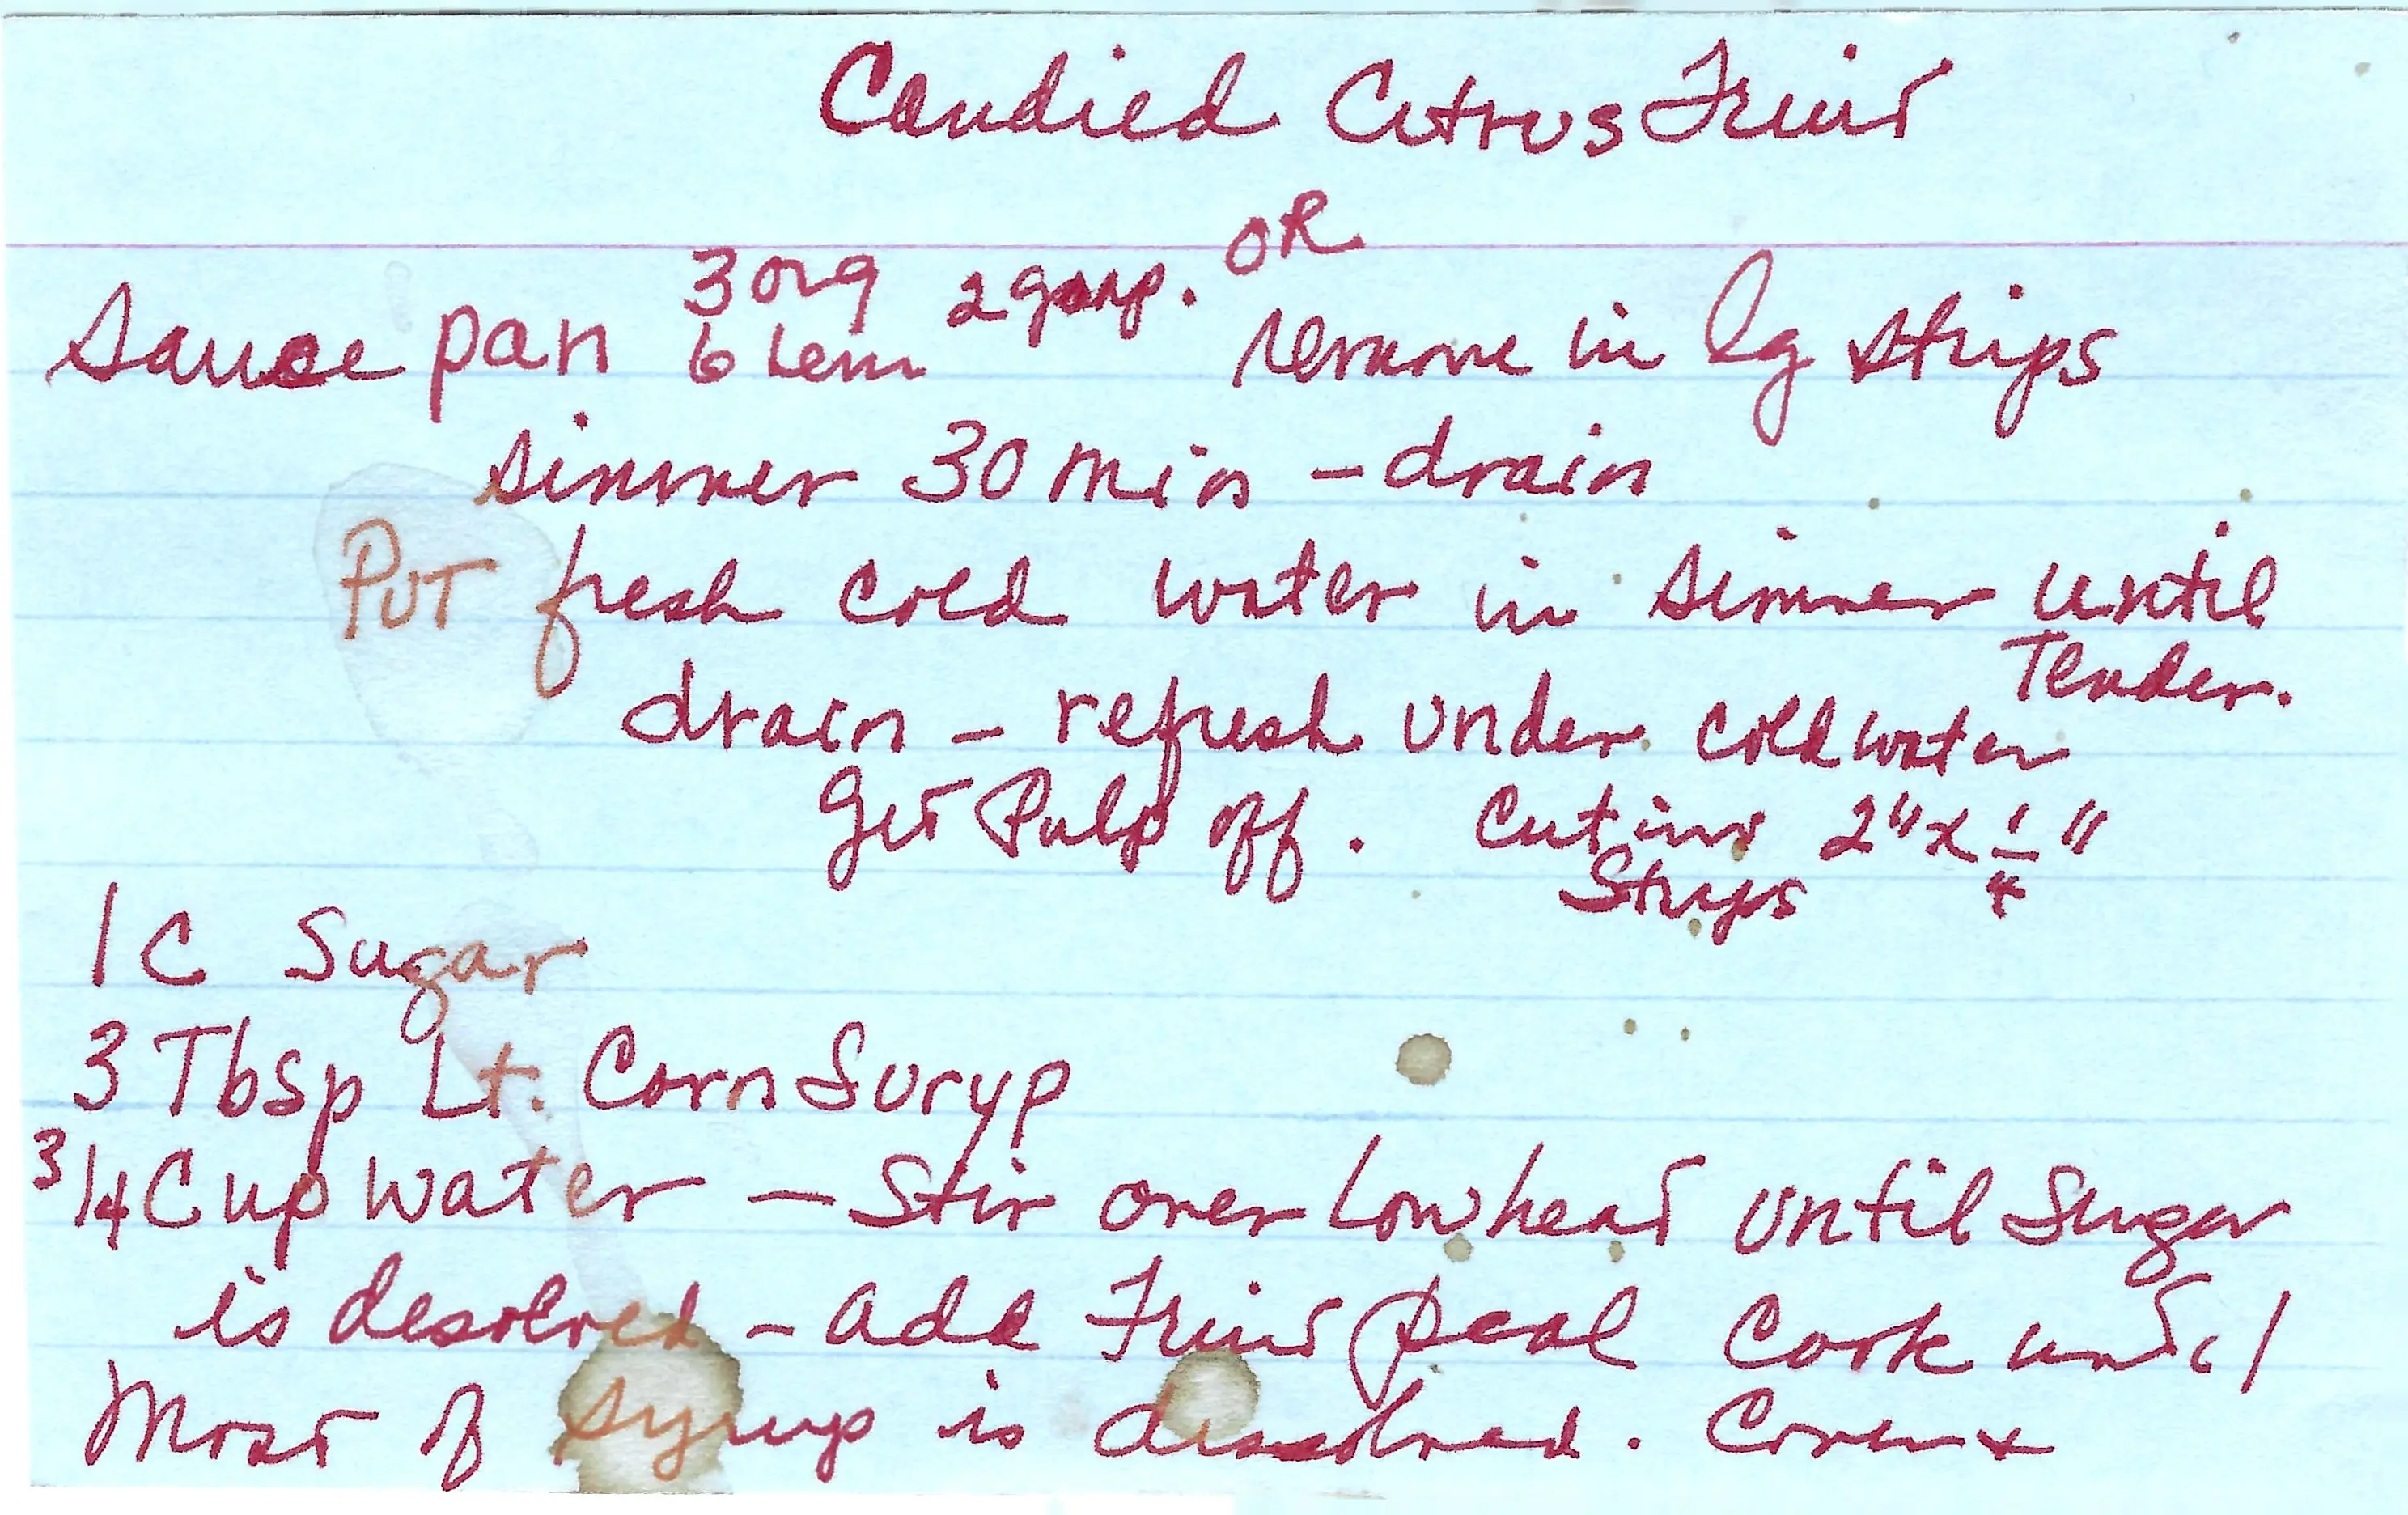 Candied Citrus Fruit
OR
3 org 2 grap.
Sauce pan 6 Lem remove in lg strips
simmer 30 min - drain
Put fresh cold water in simmer until
Tender.
drain - refresh under cold water
get Pulp off. Cut into 2" x 1/4"
Strips
1 C Sugar
3 Tbsp Lt. Corn Suryp
3/4 Cup water - Stir over low heat until Sugar
is desolved - add Fruit peal Cook until
Most of syrup is dissolved. Cover +